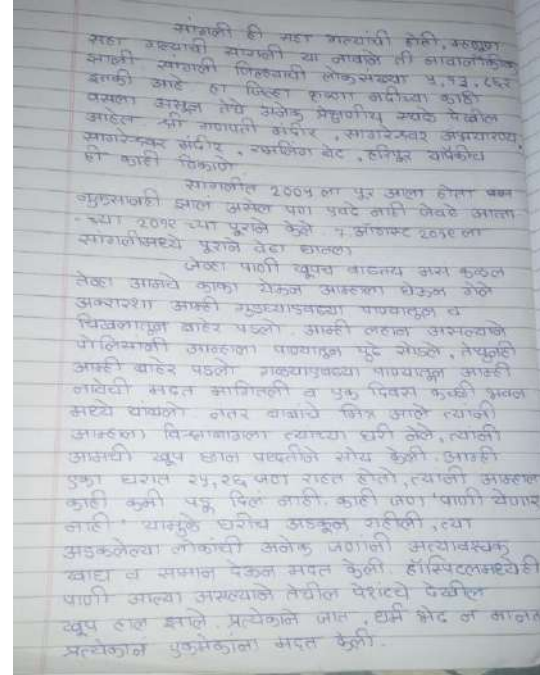 सांगली ही सहा गल्यांची होती, म्हणून
सहा गल्यांची सांगली या नावाने ती नावालौकीक
झाली. सांगली जिल्ह्याची लोकसंख्या ५,१३,८६२
इतकी आहे हा जिल्हा कृष्णा नदीच्या काठी
वसला असून तेथे अनेक प्रेक्षणीय स्थळे देखील
आहेत श्री गणपती मंदीर, सागरेश्वर अभयारण्य,
सागरेश्वर मंदीर, रामलिंग बेट, हरिपूर यापैकीच
ही काही ठिकाणे
सांगलीत 2००५ ला पूर आला होता
नुकसानही झाल असेल पण एवढे नाही जेवढे आता
-च्या 2०१९ च्या पूराने केले. ५ ऑगस्ट 2०१९ ला
सांगलीमध्ये पूराने वेढा घातला
जेव्हा पाणी खूपच वाढतय अस कळल
तेव्हा आमचे काका येऊन आम्हाला घेऊन गेले
अक्षरशा आम्ही गुडघ्याएवढ्या पाण्यातून व
चिखलातून बाहेर पडलो. आम्ही लहान असल्याने
पोलिसांनी आम्हाला पाण्यातून पुढे सोडले, तेथूनही
आम्ही बाहेर पडलो गळ्याएवढ्या पाण्यातून आम्ही
नावेची मदत मागितली व एक दिवस कच्छी भवन
मध्ये थांबलो. नंतर बाबांचे मित्र आले त्यांनी
आम्हाला विश्रामबागला त्याच्या घरी नेले, त्यांनी
आमची खूप छान पध्दतीने सोय केली. आम्ही
एका घरात २५,२६ जण राहत होतो, त्यांनी आम्हाला
काही कमी पडू दिलं नाही. काही जण 'पाणी येणार
नाही' यामुळे घरीच अडकून राहीली, त्या
अडकलेल्या लोकांची अनेक जणांनी अत्यावश्यक
खाद्य व सामान देऊन मदत केली. हॉस्पिटलमध्येही
पाणी आल्या असल्याने तेथील पेशंटचे देखील
खूप हाल झाले. प्रत्येकाने जात, धर्म भेद न मानता
प्रत्येकानं एकमेकांना मदत केली.